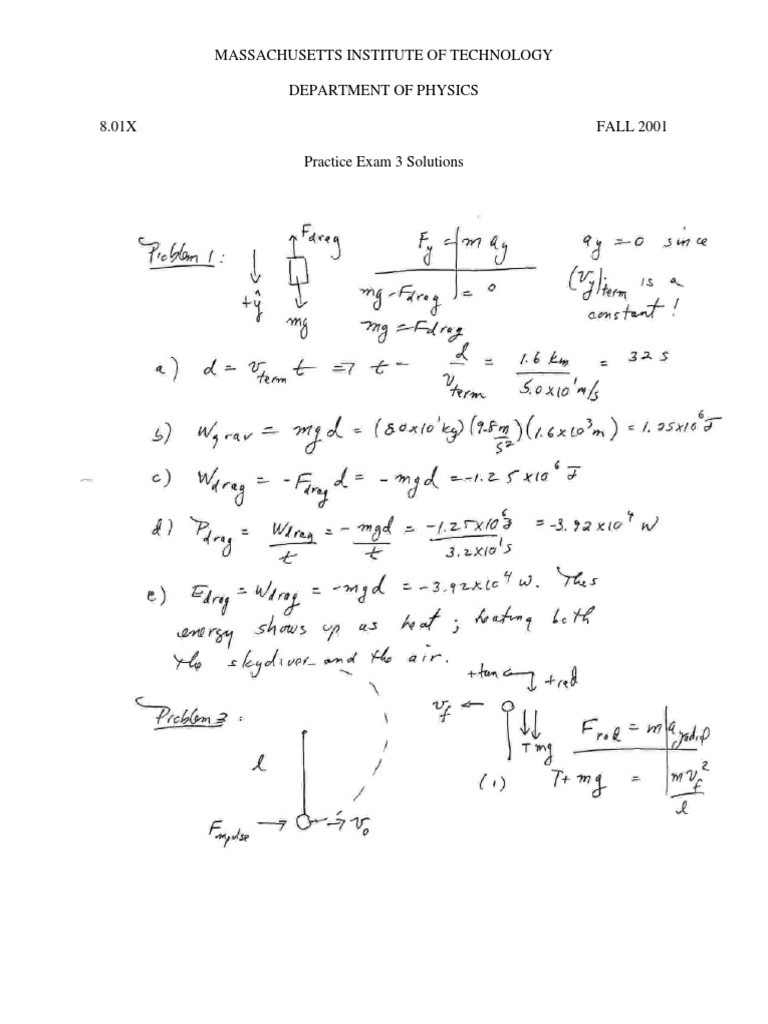 MASSACHUSETTS INSTITUTE OF TECHNOLOGY
DEPARTMENT OF PHYSICS
8.01X FALL 2001
Practice Exam 3 Solutions
Problem 1:
+ŷ
F_drag
mg
F_y = m a_y
mg - F_drag = 0
mg = F_drag
a_y = 0 since
(v_y)_term is a
constant!
a) d = v_term t ⇒ t = d / v_term = 1.6 km / 5.0 x 10^1 m/s = 32 s
b) W_grav = mgd = (8.0x10^1 kg)(9.8 m/s^2)(1.6x10^3 m) = 1.25x10^6 J
c) W_drag = -F_drag d = -mgd = -1.25x10^6 J
d) P_drag = W_drag / t = -mgd / t = -1.25x10^6 J / 3.2x10^1 s = -3.92x10^4 W
e) E_drag = W_drag = -mgd = -3.92x10^4 W. This
energy shows up as heat; heating both
the skydiver and the air.
Problem 3:
l
F_impulse
v_0
+tan +rad
v_f
T mg
F_rad = m a_radial
(1) T + mg = m v_f^2 / l